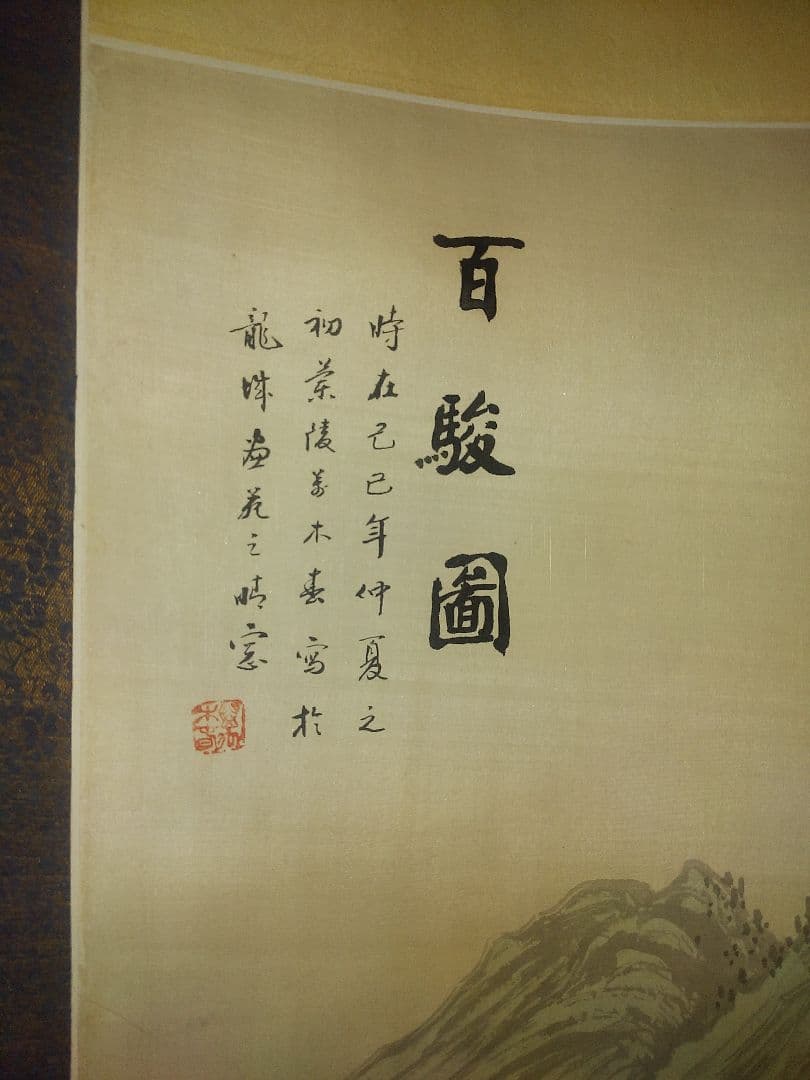 百駿圖
時在己巳年仲夏之
初蘭陵萬木春寫於
龍城畫苑之晴窓